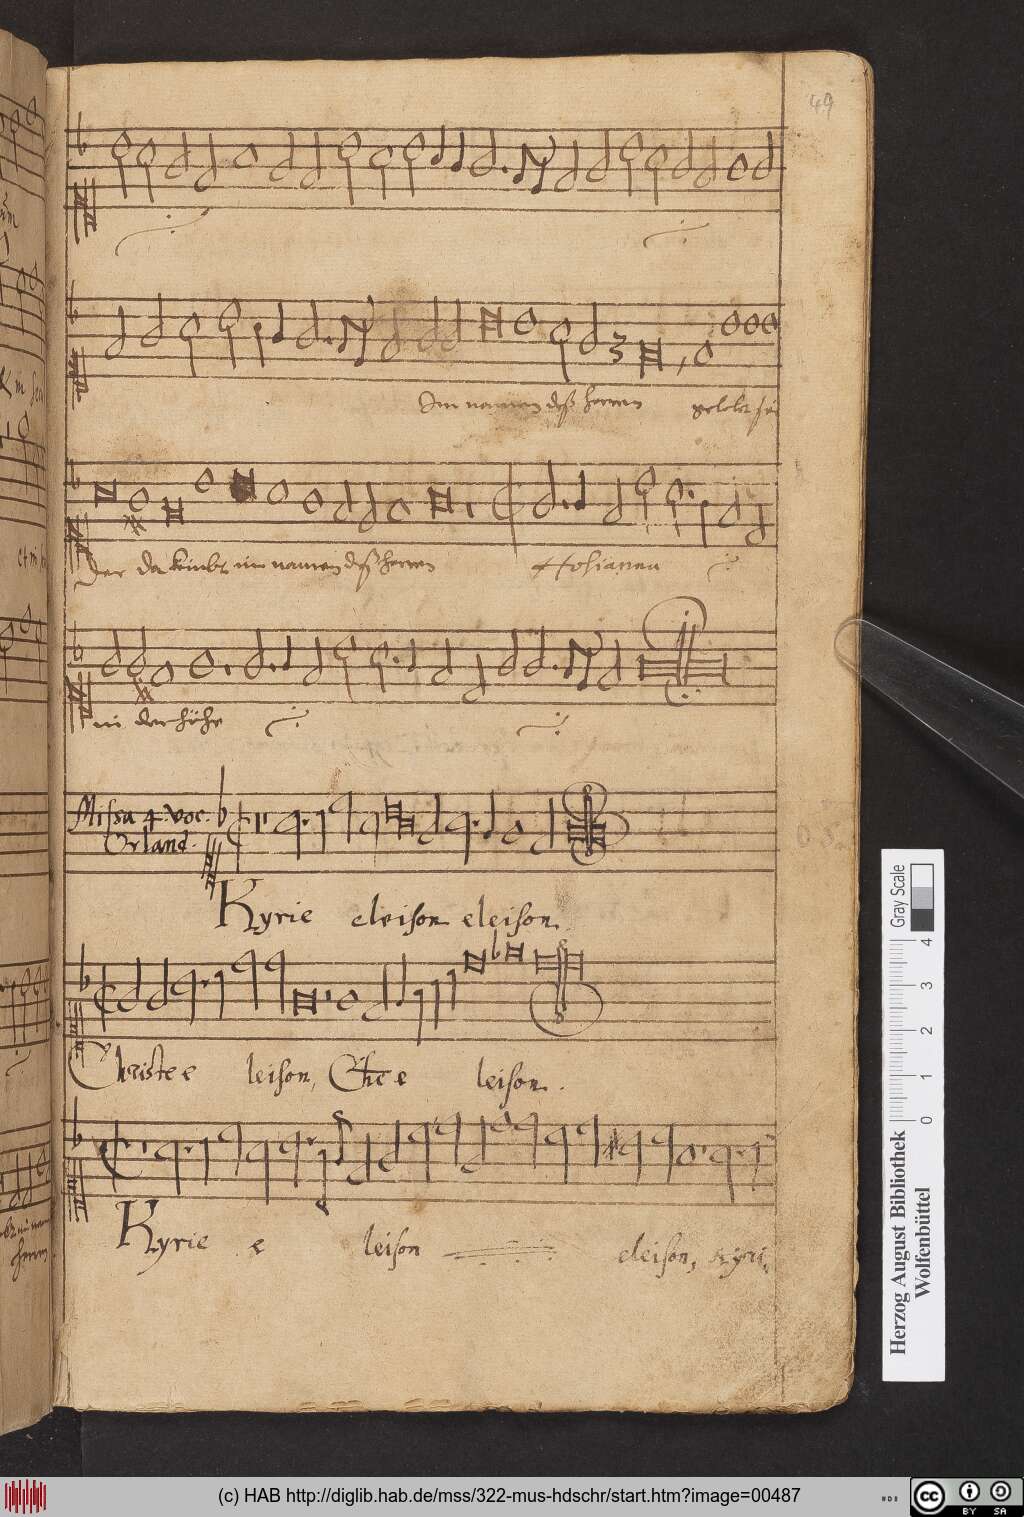 49
Im namen deß herren gelobt sei
Der da kombt im namen deß herren Hosianna
in der höhe
Missa 4. voc.
Orland.
Kyrie eleison eleison.
Christe e leison, Chre e leison.
Kyrie e leison eleison, Kyri
Gray Scale
0 1 2 3 4
Herzog August Bibliothek
Wolfenbüttel
(c) HAB http://diglib.hab.de/mss/322-mus-hdschr/start.htm?image=00487
CC BY SA